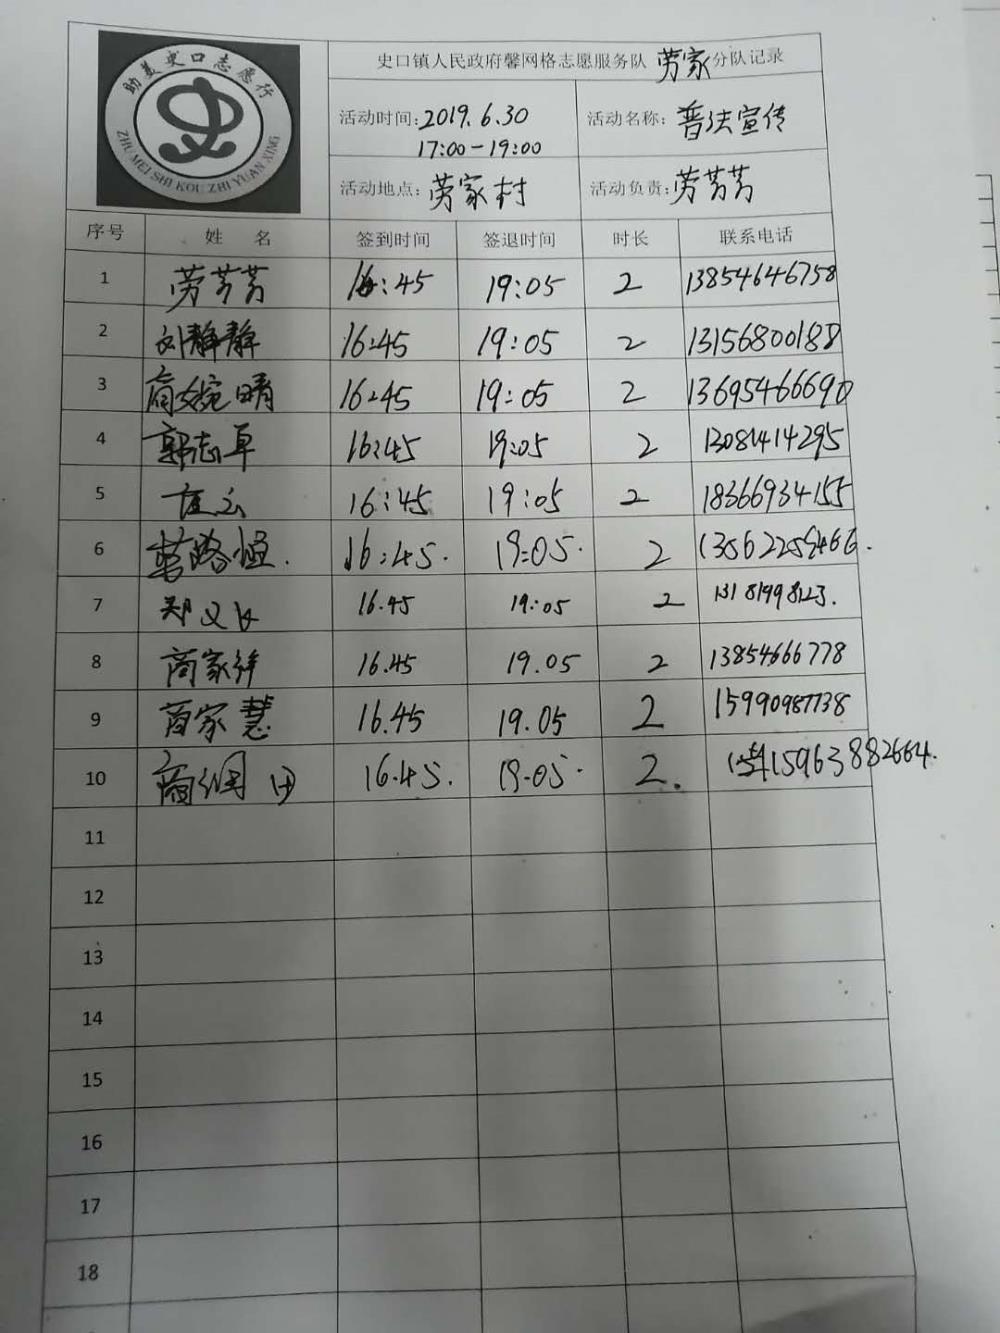 助美史口志愿行
ZHU MEI SHI KOU ZHI YUAN XING
史口镇人民政府馨网格志愿服务队 劳家 分队记录
活动时间: 2019.6.30 17:00-19:00
活动名称: 普法宣传
活动地点: 劳家村
活动负责: 劳芳芳
序号 姓名 签到时间 签退时间 时长 联系电话
1 劳芳芳 16:45 19:05 2 13854646758
2 刘静静 16:45 19:05 2 13156800188
3 商婉晴 16:45 19:05 2 13695466690
4 郭志卓 16:45 19:05 2 13081414295
5 16:45 19:05 2 18366934155
6 16:45. 19:05. 2
7 郑 16.45 19:05 2 13181998123.
8 商家祥 16.45 19.05 2 13854666778
9 商家慧 16.45 19.05 2 15990987738
10 商 田 16.45. 19.05. 2. 15963882664.
11
12
13
14
15
16
17
18